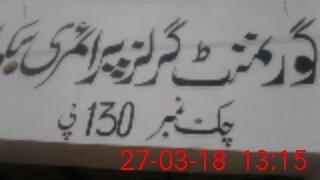 گورنمنٹ گرلز پرائمری سکو
چک نمبر 130 پی
27-03-18 13:15